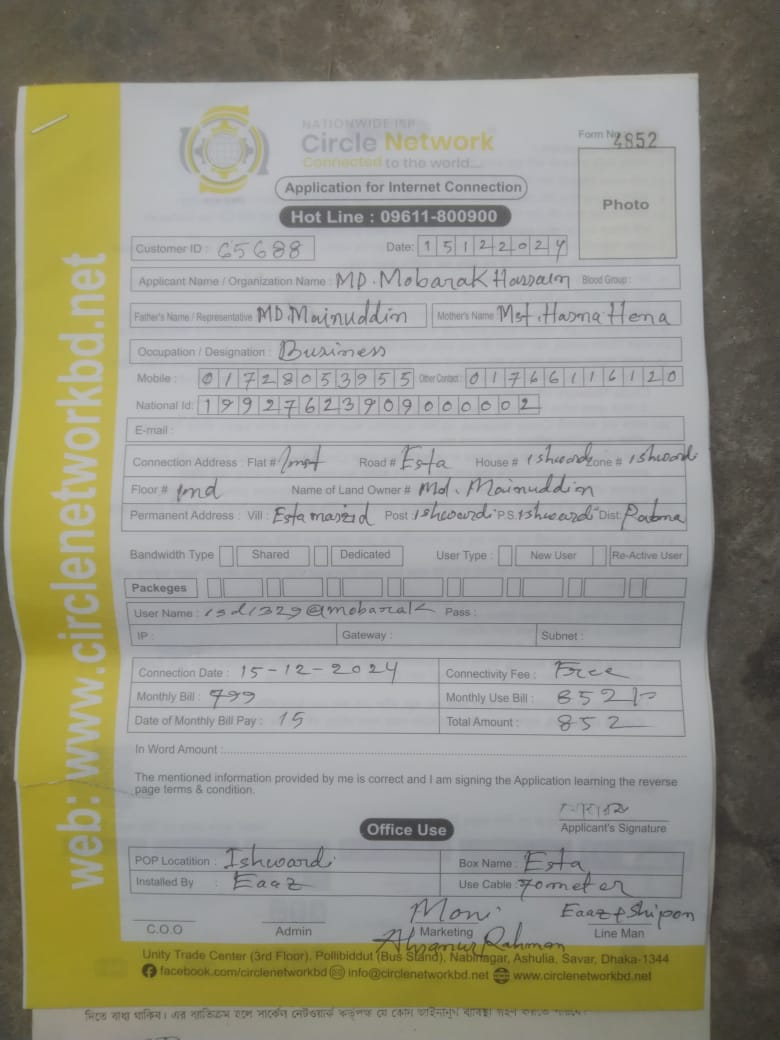 NATIONWIDE ISP
Circle Network
Connected to the world....
Form No. 4852
Application for Internet Connection
Photo
Hot Line : 09611-800900
Customer ID : 65688 Date: 15122024
Applicant Name / Organization Name : MD. Mobarak Hossain Blood Group :
Father's Name / Representative MD. Mainuddin Mother's Name Mst. Hasna Hena
Occupation / Designation : Business
Mobile : 01728053955 Other Contact : 01766116120
National Id: 19927623909000002
E-mail :
Connection Address : Flat # Road # Esta House # ishwordi Zone # ishwordi
Floor # Name of Land Owner # Md. Mainuddin
Permanent Address : Vill : Esta masjid Post ishwardi P.S. ishwardi Dist: Pabna
Bandwidth Type Shared Dedicated User Type : New User Re-Active User
Packeges
User Name : isd1329@mobarak Pass :
IP : Gateway : Subnet :
Connection Date : 15-12-2024 Connectivity Fee : Free
Monthly Bill : 799 Monthly Use Bill : 852/-
Date of Monthly Bill Pay : 15 Total Amount : 852
In Word Amount :
The mentioned information provided by me is correct and I am signing the Application learning the reverse
page terms & condition.
Applicant's Signature
Office Use
POP Locatition : Ishwardi Box Name : Esta
Installed By : Eaaz Use Cable : 70 meter
Moni Eaaz + Shipon
C.O.O Admin Marketing Line Man
Ahsanur Rahman
Unity Trade Center (3rd Floor), Pollibiddut (Bus Stand), Nabinagar, Ashulia, Savar, Dhaka-1344
facebook.com/circlenetworkbd info@circlenetworkbd.net www.circlenetworkbd.net
web: www.circlenetworkbd.net